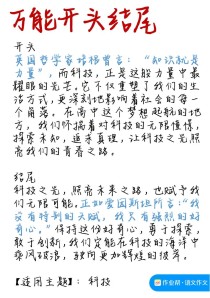 万能开头结尾
开头
英国哲学家培根曾言：“知识就是
力量”，而科技，正是这股力量中最
耀眼的光芒。它不仅重塑了我们的生
活方式，更深刻地影响着社会的每一
个角落。在高中这个梦想起航的地
方，我们怀揣着对科技的无限憧憬，
探索未知，追求真理，让科技之光照
亮我们的青春之路。
结尾
科技之光，照亮未来之路，也赋予我
们无限可能。正如爱因斯坦所言：“我
没有特别的天赋，我只有强烈的好
奇心。”保持这份好奇心，勇于探索，
敢于创新，我们定能在科技的海洋中
乘风破浪，驶向更加辉煌的彼岸。
【适用主题】：科技
作业帮·语文作文